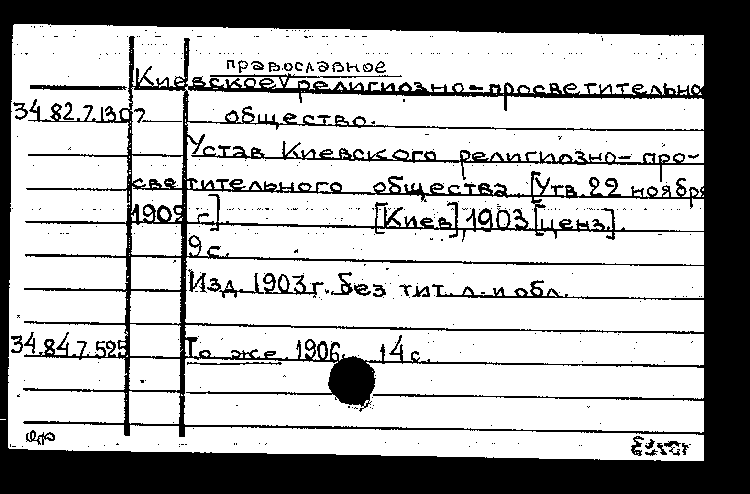 православное
Киевское V религиозно-просветительно
34.82.7.130? общество.
Устав Киевского религиозно-про-
светительного общества [Утв. 22 ноября
190? г.]. [Киев], 1903 [ценз.].
9 с.
Изд. 1903 г. без тит. л. и обл.
34.84.7.525 То же. 1906. 14 с.